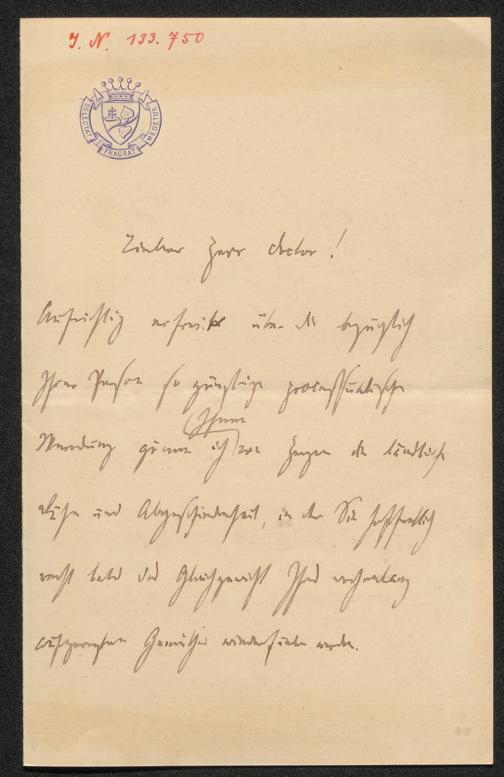 J. N. 133.750
DELECTAT FRAGRAT MEDETUR
Lieber Herr Doctor!
Aufrichtig erfreut über die bezüglich
Ihrer Person so günstige processualische
Wendung gönne ich Ihnen von Herzen die ländliche
Ruhe und Abgeschiedenheit, in der Sie hoffentlich
recht bald das Gleichgewicht Ihres
aufgeregten Gemüthes wiederfinden werden.